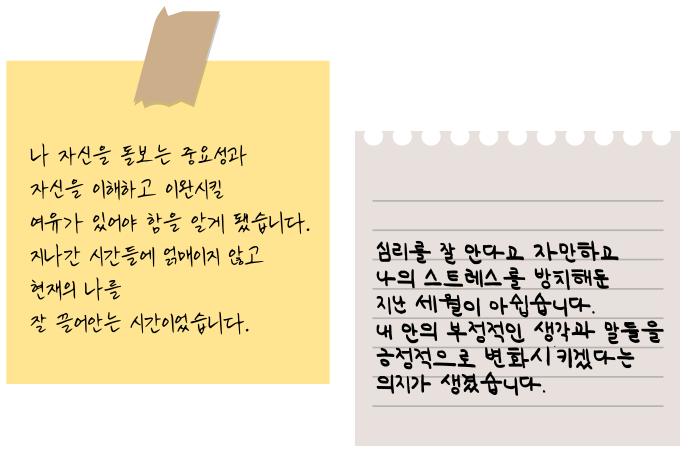 나 자신을 돌보는 중요성과
자신을 이해하고 이완시킬
여유가 있어야 함을 알게 됐습니다.
지나간 시간들에 얽매이지 않고
현재의 나를
잘 끌어안는 시간이었습니다.
심리를 잘 안다고 자만하고
나의 스트레스를 방치해둔
지난 세월이 아쉽습니다.
내 안의 부정적인 생각과 말들을
긍정적으로 변화시키겠다는
의지가 생겼습니다.